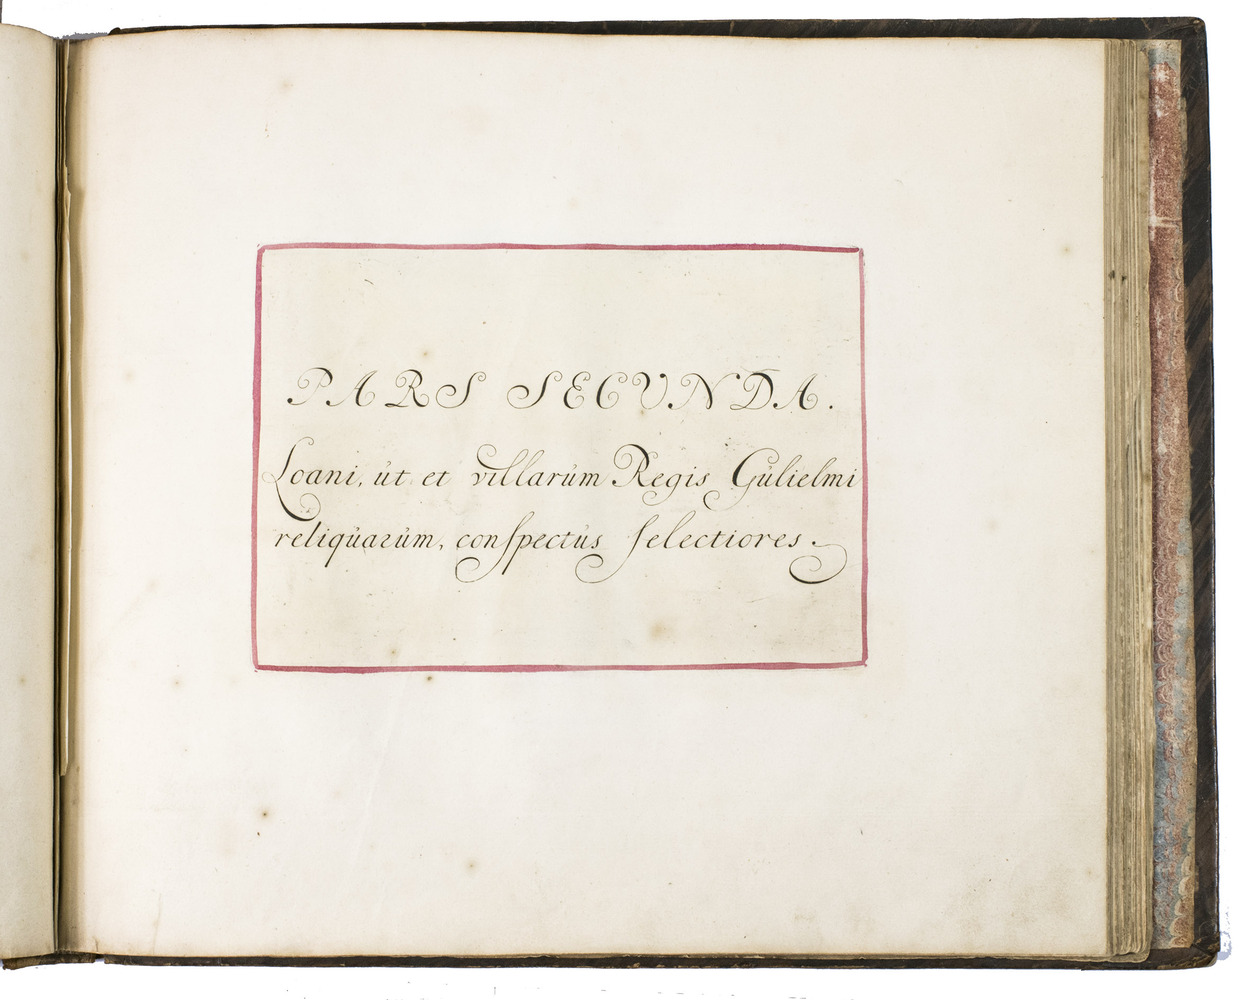 PARS SECUNDA.
Loani, ut et villarum Regis Gulielmi
reliquarum, conſpectus ſelectiores.